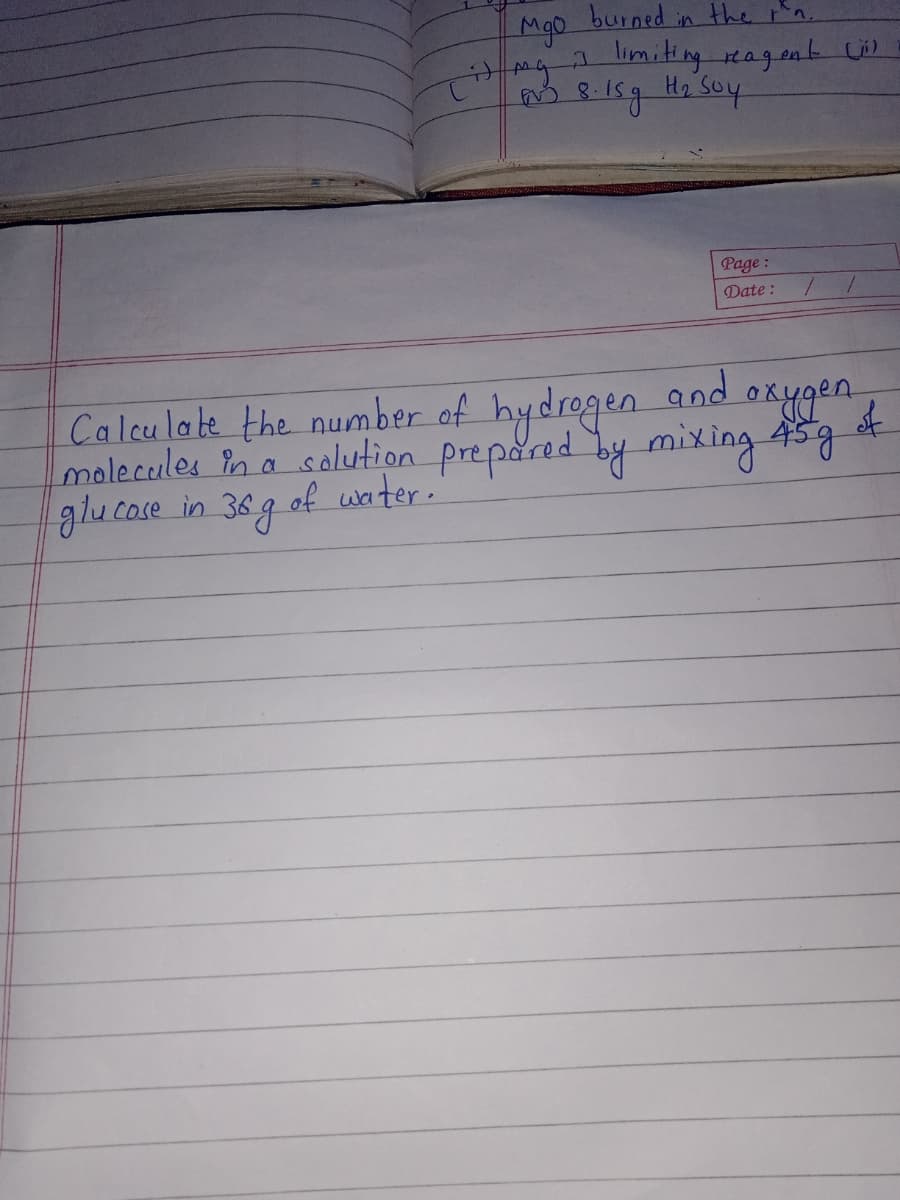 Mgo burned in the rxn.
(i) Mg is limiting reagent (ii)
(iv) 8.15g H2SO4
Page :
Date : / /
Calculate the number of hydrogen and oxygen
molecules in a solution prepared by mixing 45g of
glucose in 36g of water.